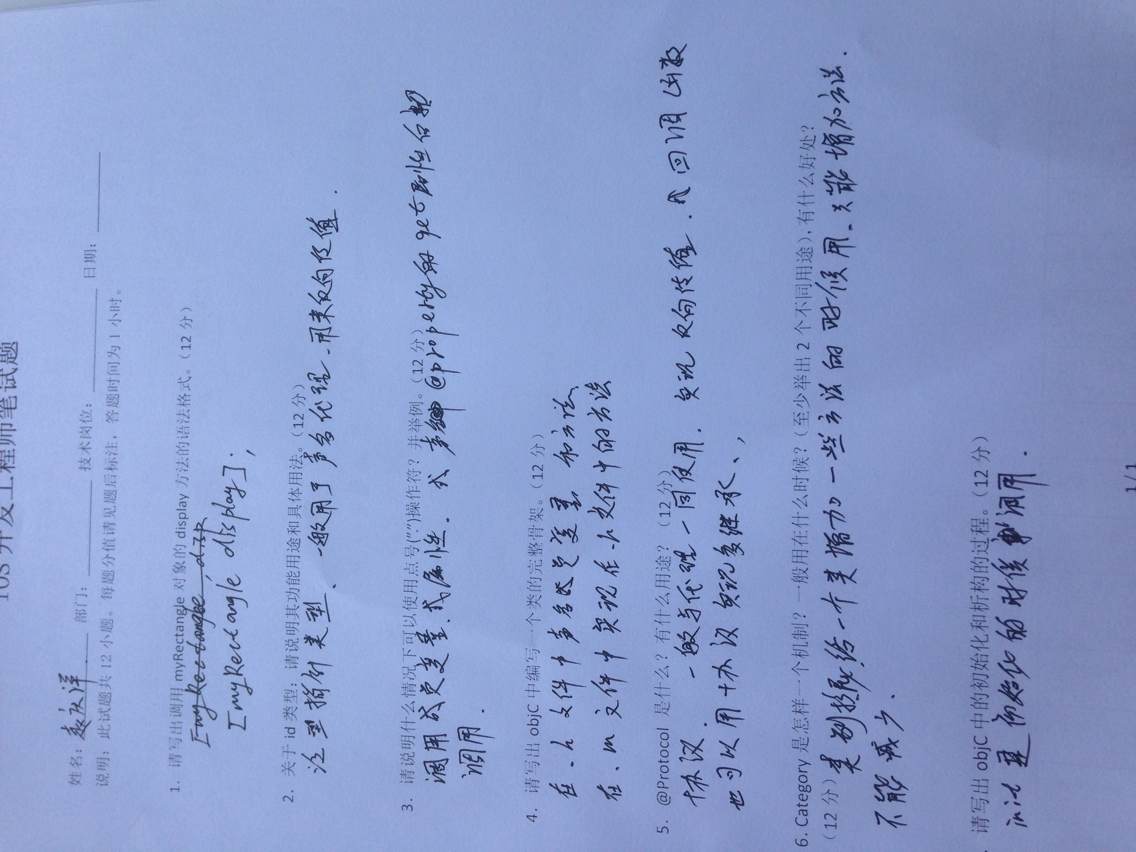 iOS 开发工程师笔试题
姓名：袁庆洋 部门： 技术岗位： 日期：
说明：此试题共 12 小题。每题分值请见题后标注，答题时间为 1 小时。
1. 请写出调用 myRectangle 对象的 display 方法的语法格式。（12 分）
[myRectangle, disp
[myRectangle display];
2. 关于 id 类型：请说明其功能用途和具体用法。（12 分）
泛型指针类型、一般用于声名代理、用来反向传值.
3. 请说明什么情况下可以使用点号(".")操作符？并举例。（12 分）
调用成员变量,或属性. 或 @property的get属性
调用.
4. 请写出 objC 中编写一个类的完整骨架。（12 分）
在.h文件中声名成员变量 和方法
在.m文件中实现在.h文件中的方法
5. @Protocol 是什么？有什么用途？（12 分）
协议. 一般与代理一同使用. 实现反向传值.或回调函数
也可以用协议实现多继承、,
6. Category 是怎样一个机制？一般用在什么时候？（至少举出 2 个不同用途），有什么好处？
（12 分）类别扩展,给一个类增加一些方法的时候用.只能增加方法.
不能减少.
. 请写出 objC 中的初始化和析构的过程。（12 分）
init 是初始化的时候调用.
1 / 1